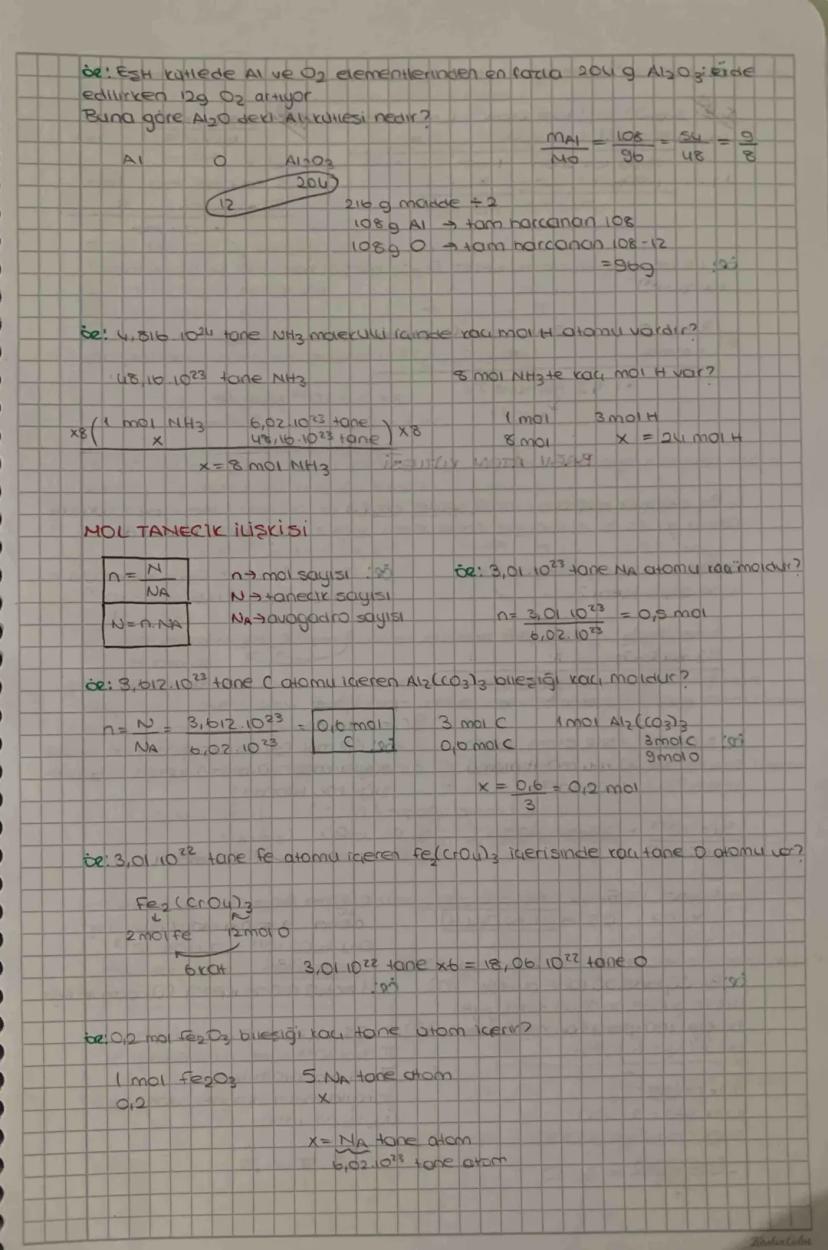 ör: Eşit kütlede Al ve O₂ elementlerinden en fazla 204 g Al₂O₃ elde
edilirken 12g O₂ artıyor
Buna göre Al₂O deki Al kütlesi nedir?
mAl/mO = 108/96 = 54/48 = 9/8
Al O Al₂O₃
204
12 216 g madde ÷2
108g Al → tam harcanan 108
108g O → tam harcanan 108-12
=96g
ör: 4,816.10²⁴ tane NH₃ molekülü içinde kaç mol H atomu vardır?
48,16.10²³ tane NH₃ 8 mol NH₃te kaç mol H var?
x8 ( 1 mol NH₃ 6,02.10²³ tane ) x8 1 mol 3 mol H
x 48,16.10²³ tane 8 mol x = 24 mol H
x = 8 mol NH₃
MOL TANECİK İLİŞKİSİ
n = N/NA n→mol sayısı ör: 3,01.10²³ tane Na atomu kaç moldür?
N→tanecik sayısı
N=n.NA NA→avogadro sayısı n = 3,01.10²³/6,02.10²³ = 0,5 mol
ör: 3,612.10²³ tane C atomu içeren Al₂(CO₃)₃ bileşiği kaç moldür?
n = N/NA = 3,612.10²³/6,02.10²³ = 0,6 mol C 3 mol C 1 mol Al₂(CO₃)₃
0,6 mol C 3 mol C
9 mol O
x = 0,6/3 = 0,2 mol
ör: 3,01.10²² tane Fe atomu içeren Fe₂(CrO₄)₃ içerisinde kaç tane O atomu var?
Fe₂(CrO₄)₃
2 mol Fe 12 mol O
6 kat 3,01.10²² tane x6 = 18,06.10²² tane O
ör: 0,2 mol Fe₂O₃ bileşiği kaç tane atom içerir?
1 mol Fe₂O₃ 5.NA tane atom
0,2 x
x = NA tane atom
6,02.10²³ tane atom